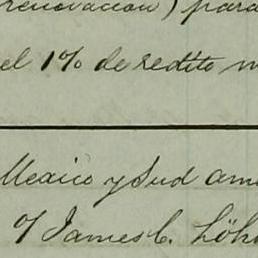 renovacion) para
el 1% de redito m
Mexico y Sud ame
% James C. Löh